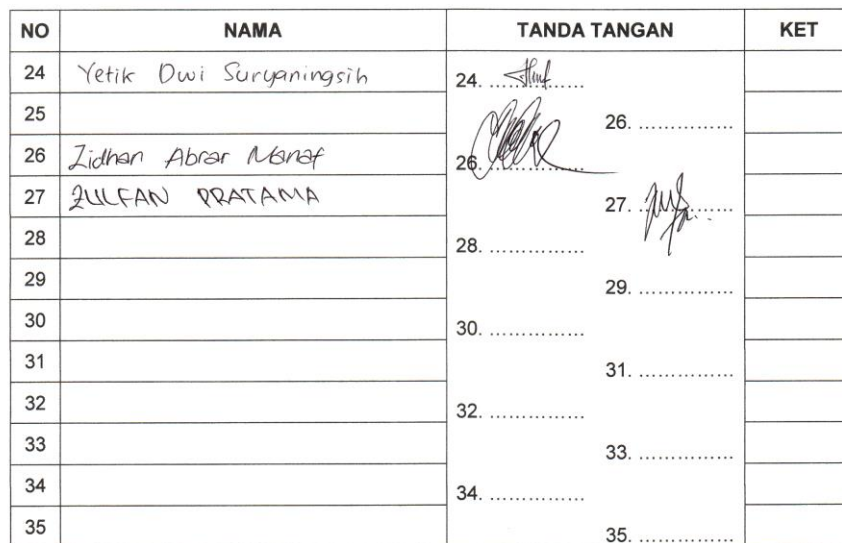 NO NAMA TANDA TANGAN KET
24 Yetik Dwi Suryaningsih 24. ................
25 26. ................
26 Zidhan Abrar Manaf 26. ................
27 ZULFAN PRATAMA 27. ................
28 28. ................
29 29. ................
30 30. ................
31 31. ................
32 32. ................
33 33. ................
34 34. ................
35 35. ................